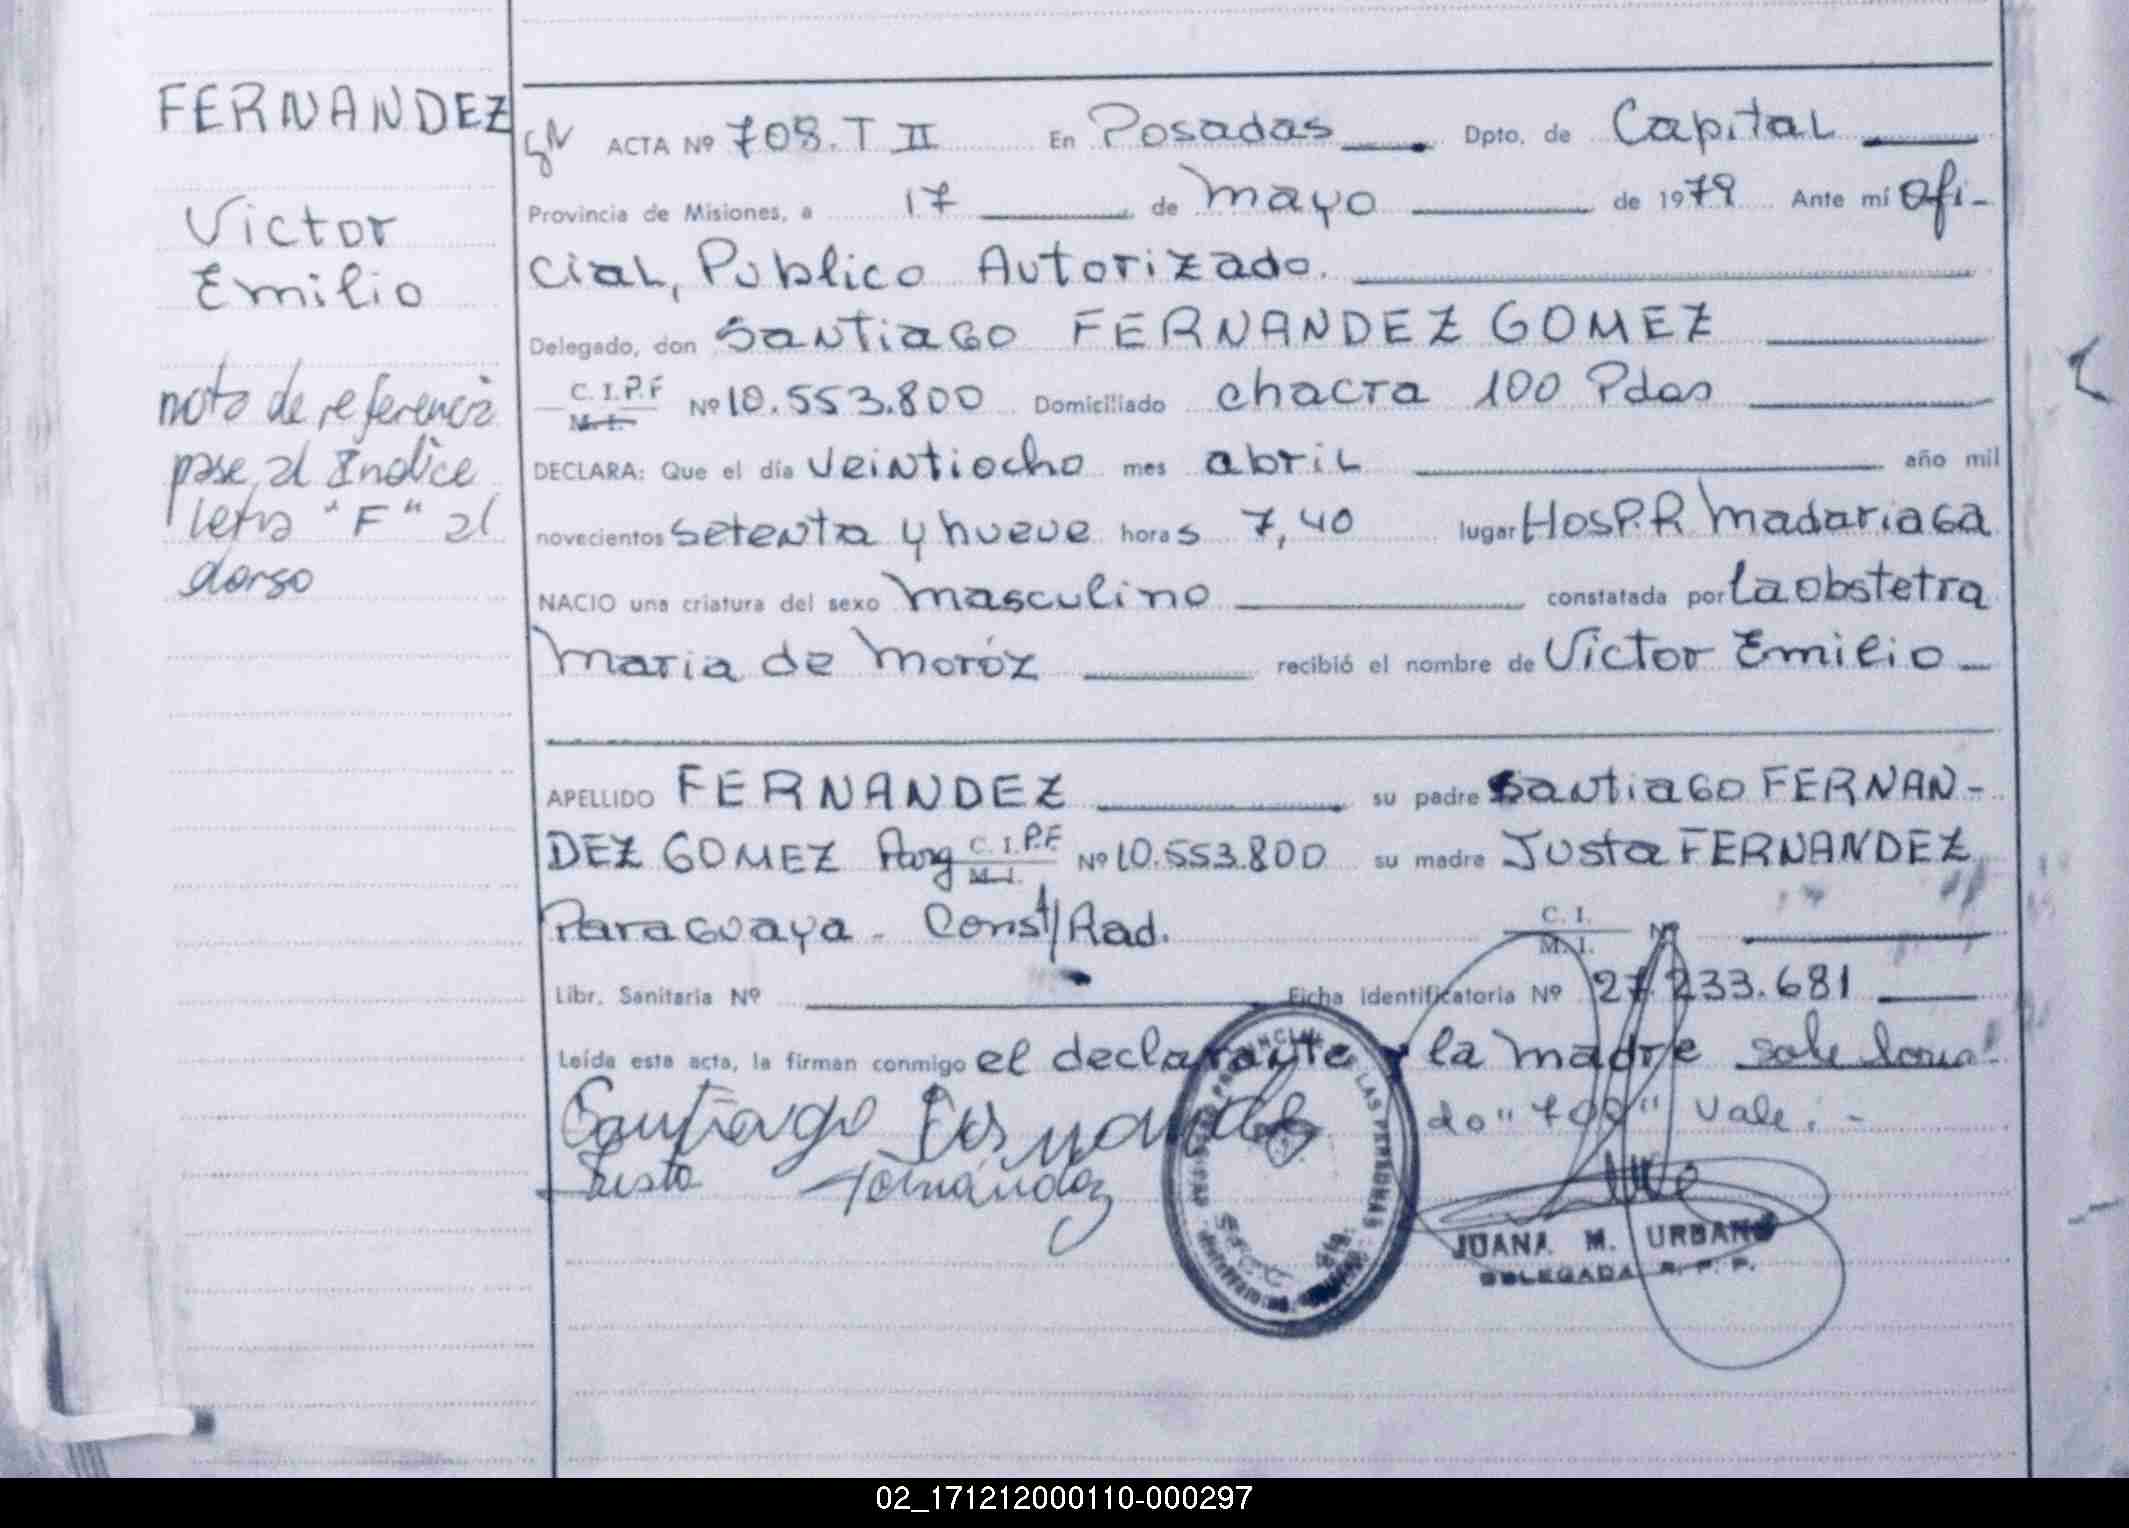 FERNANDEZ
Victor
Emilio
nota de referencia
pase al Indice
letra "F" al
dorso
ACTA Nº 708. T II En Posadas Dpto. de Capital
Provincia de Misiones, a 17 de mayo de 1979 Ante mí Ofi-
cial, Publico Autorizado.
Delegado, don Santiago FERNANDEZ GOMEZ
C. I. P. F M. I. Nº 10.553.800 Domiciliado chacra 100 Pdas
DECLARA: Que el día veintiocho mes abril año mil
novecientos setenta y nueve horas 7,40 lugar Hosp. R Madariaga
NACIO una criatura del sexo masculino constatada por la obstetra
Maria de Moróz recibió el nombre de Victor Emilio
APELLIDO FERNANDEZ su padre Santiago FERNAN-
DEZ GOMEZ Arg C. I. P. F M. I. Nº 10.553.800 su madre Justa FERNANDEZ
Paraguaya - Const/Rad. C. I. M. I. Nº
Libr. Sanitaria Nº Ficha Identificatoria Nº 27.233.681
Leída esta acta, la firman conmigo el declarante y la madre
do "709" Vale. -
Santiago Fernandez
Justa Fernández
PROVINCIAL DE LAS PERSONAS
JUANA M. URBANO
DELEGADA R. P. P.
02_171212000110-000297